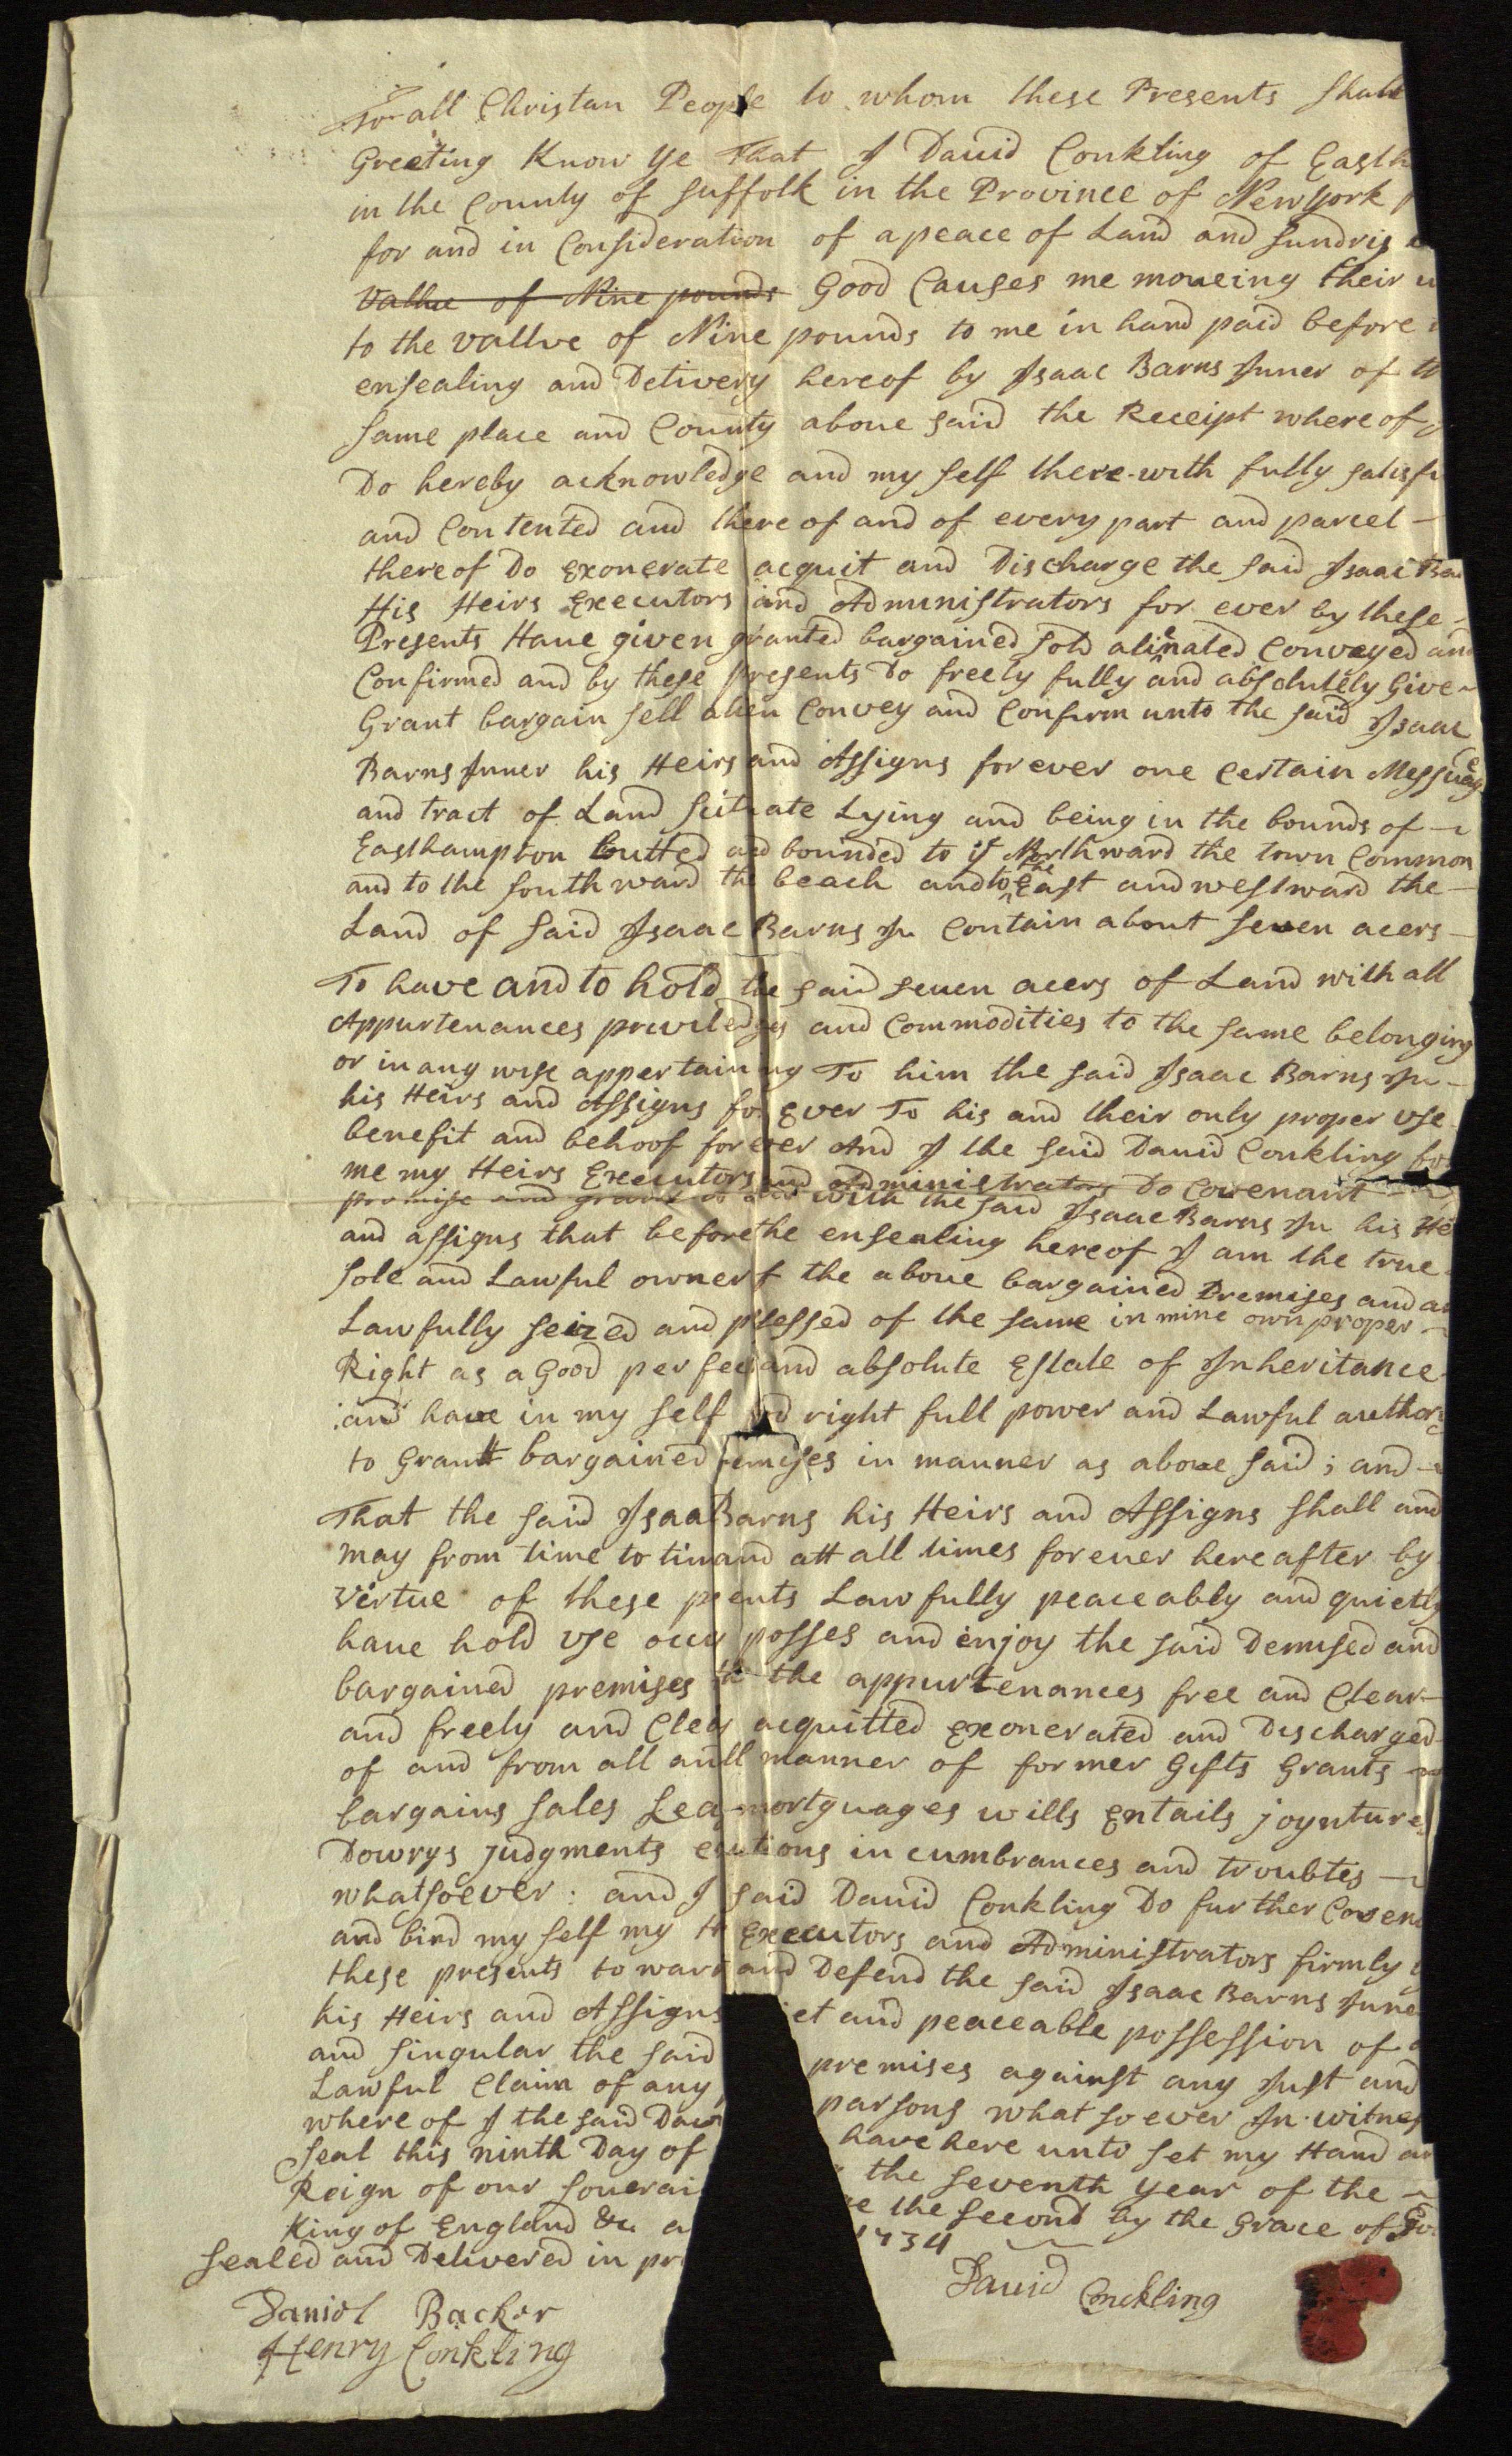 To all Christan People to whom these Presents shall
Greeting Know ye That I Dauid Conkling of Easth
in the County of suffolk in the Province of Newyork
for and in Consideration of a peace of Land and sundris
Vallue of Nine pounds Good Causes me moueing their
to the vallue of Nine pounds to me in hand paid before
ensealing and Delivery hereof by Isaac Barns Juner of th
same place and County aboue said the Receipt where of
Do hereby acknowledge and my self there with fully satisfi
and Contented and there of and of every part and parcel
thereof Do exonerate acquit and Discharge the said Isaac Ba
His Heirs Executors and Administrators for ever by these
Presents Haue given granted bargained sold alienated Conveyed and
Confirmed and by these presents Do freely fully and absolutely Give
Grant bargain sell alien Convey and Confirm unto the said Isaac
Barns Juner his Heirs and Assigns for ever one Certain Messuage
and tract of Land scituate Lying and being in the bounds of
Easthampton butted and bounded to ye Northward the town Common
and to the south ward the beach and to the East and westward the
Land of said Isaac Barns Ju Contain about seven acers
To have and to hold the said seuen acers of Land with all
Appurtenances priviledges and Commodities to the same belonging
or in any wise appertaining To him the said Isaac Barns Ju
his Heirs and Assigns for Ever To his and their only proper use
benefit and behoof forever And I the said Dauid Conkling for
me my Heirs Executors and Administrators Do Covenant
promise and grant to and with the said Isaac Barns Ju his He
and assigns that before the ensealing hereof I am the true
sole and Lawful owner f the aboue bargained Premises and a
Lawfully seized and p ssessed of the same in mine own proper
Right as a Good perfect and absolute Estate of Inheritance
and haue in my self od right full power and Lawful authori
to Grantt bargained remises in manner as aboue said ; and
That the said Isaa Barns his Heirs and Assigns shall and
may from time to tim and att all times foreuer hereafter by
virtue of these p ents Lawfully peaceably and quietly
haue hold use occu posses and enjoy the said Demised and
bargained premises th the appurtenances free and Clear
and freely and Clea acquitted exonerated and Discharged
of and from all an ll manner of former Gifts Grants
bargains sales Lea mortguages wills Entails joyntures
Dowrys judgments e utions in cumbrances and troubles
whatsoever : and I said Dauid Conkling Do further Covena
and bind my self my H Executors and Administrators firmly
these presents to warr and Defend the said Isaac Barns June
his Heirs and Assigns iet and peaceable possession of
and singular the said premises against any Just and
Lawful Claim of any parsons what so ever In witnes
where of I the said Daui have here unto set my Hand an
seal this ninth Day of the seventh year of the
Reign of our souerai ge the second by the Grace of Go
King of England &c a 1734
sealed and Delivered in pr
Dauid Conckling
Daniel Backer
Henry Conkling